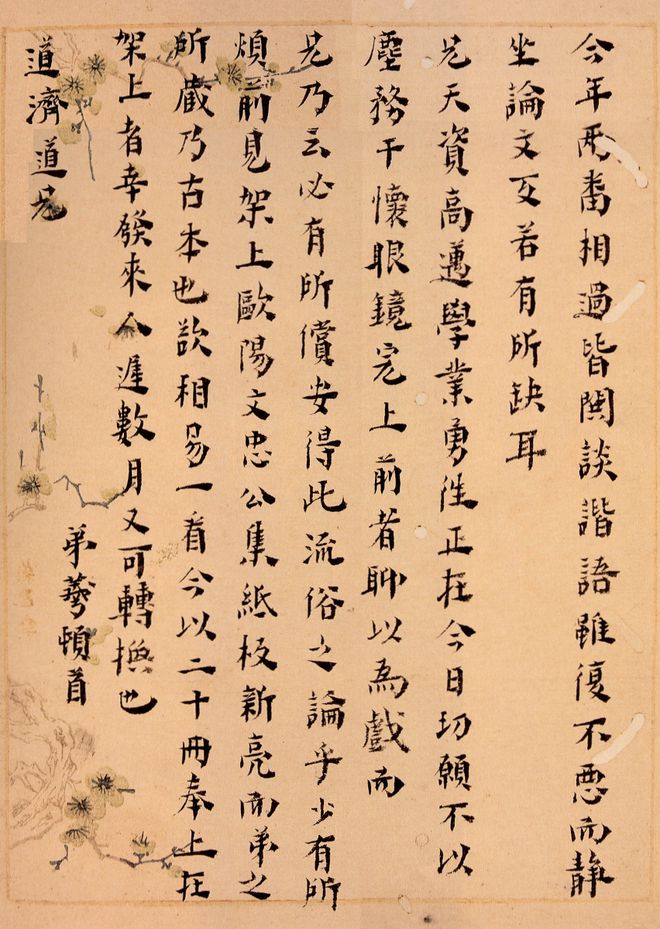 今年兩番相過皆閑談諧語雖復不惡而靜
坐論文互若有所缺耳
兄天資高邁學業勇往正在今日切願不以
塵務干懷眼鏡完上前者聊以為戲而
兄乃云必有所償安得此流俗之論乎少有所
煩前見架上歐陽文忠公集紙板新亮而弟之
所藏乃古本也欲相易一看今以二十冊奉上在
架上者幸發來人遲數月又可轉換也
弟蕚頓首
道濟道兄